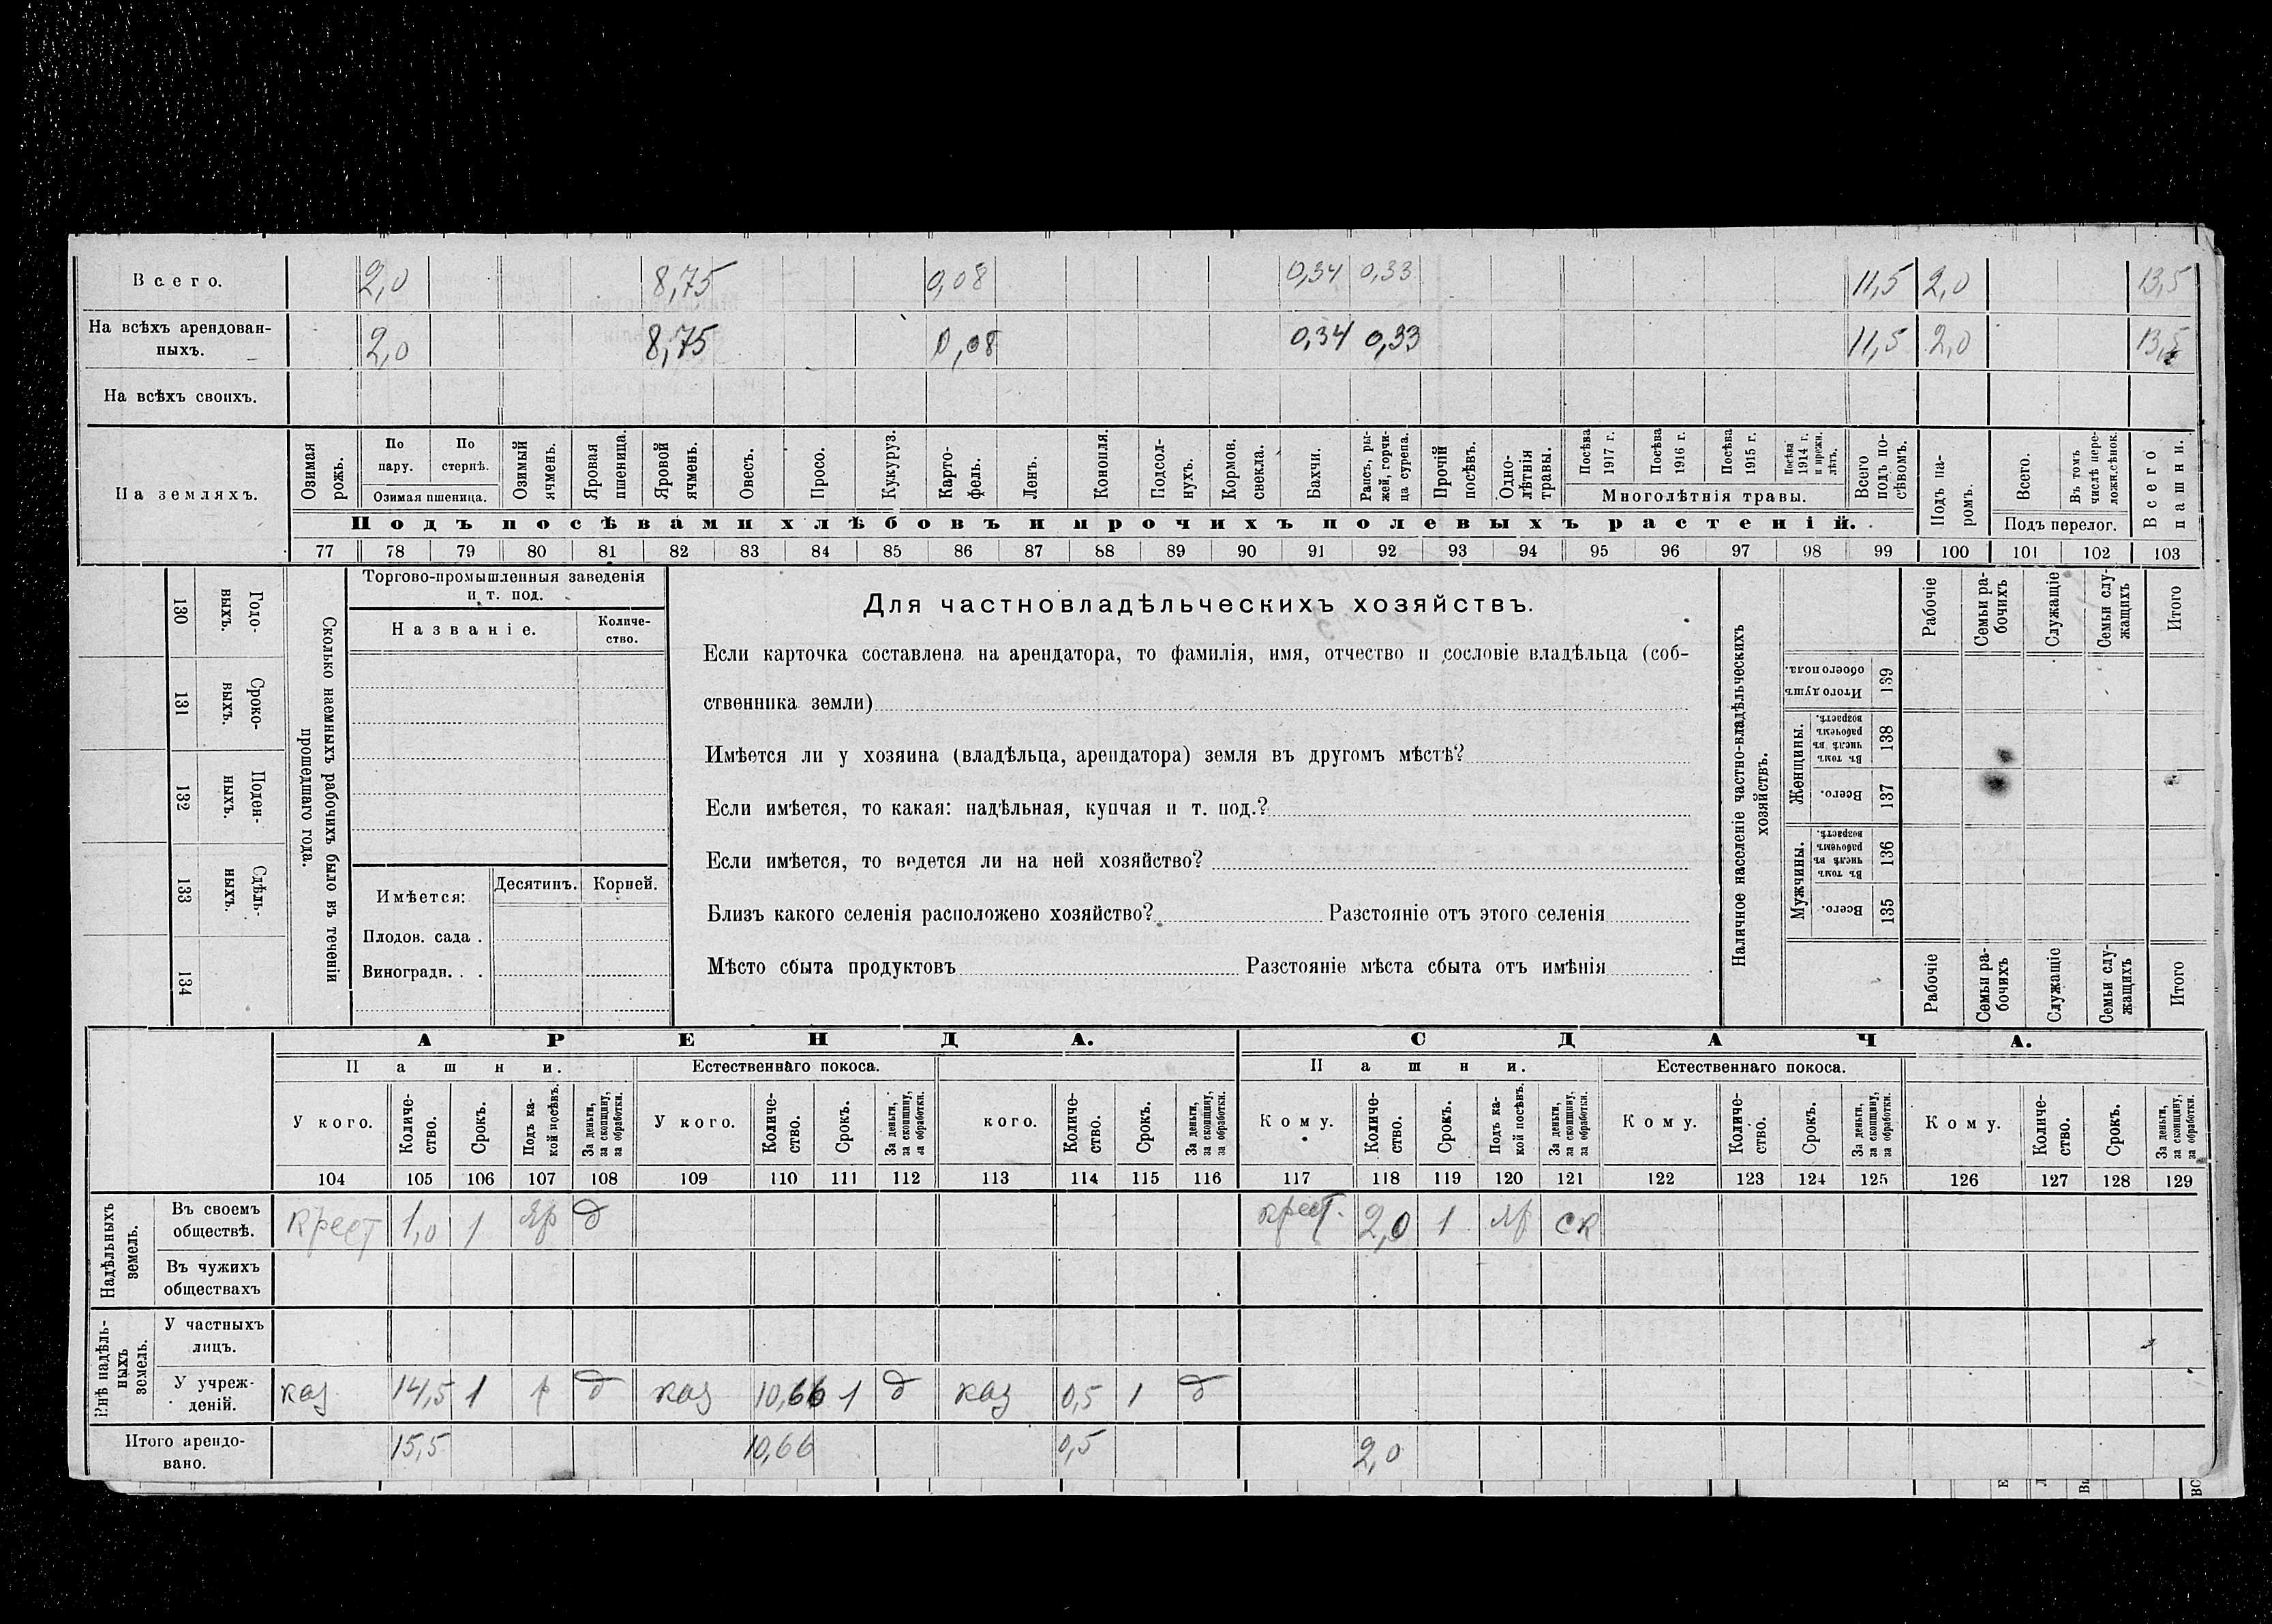 Всего. 2,0 8,75 0,08 0,34 0,33 11,5 2,0 13,5
На всѣхъ арендован-
ныхъ. 2,0 8,75 0,08 0,34 0,33 11,5 2,0 13,5
На всѣхъ своихъ.
На земляхъ.
Озимая рожь.
По пару.
По стернѣ.
Озимая пшеница.
Озимый ячмень.
Яровая пшеница.
Яровой ячмень.
Овесъ.
Просо.
Кукуруз.
Карто-
фель.
Ленъ.
Конопля.
Подсол-
нухъ.
Кормов. свекла.
Бахчи.
Рапсъ, ры-
жей, горчи-
ца сурепа.
Прочій посѣвъ.
Одно-
лѣтнія травы.
Посѣва 1917 г.
Посѣва 1916 г.
Посѣва 1915 г.
Посѣва 1914 г. и прежн. лѣтъ.
Многолѣтнія травы.
Всего подъ по-
сѣвомъ.
Подъ па-
ромъ.
Всего.
Въ томъ числѣ пере-
ложн.сѣнок.
Подъ перелог.
Всего пашни.
Подъ посѣвами хлѣбовъ и прочихъ полевыхъ растеній.
77 78 79 80 81 82 83 84 85 86 87 88 89 90 91 92 93 94 95 96 97 98 99 100 101 102 103
130 Годо-
выхъ.
131 Сроко-
выхъ.
132 Поден-
ныхъ.
133 Сдѣль-
ныхъ.
134
Сколько наемныхъ рабочихъ было въ теченіи
прошедшаго года.
Торгово-промышленныя заведенія
и т. под.
Названіе.
Количе-
ство.
Имѣется: Десятинъ. Корней.
Плодов. сада .
Виноградн. . .
Для частновладѣльческихъ хозяйствъ.
Если карточка составлена на арендатора, то фамилія, имя, отчество и сословіе владѣльца (соб-
ственника земли)
Имѣется ли у хозяина (владѣльца, арендатора) земля въ другомъ мѣстѣ?
Если имѣется, то какая: надѣльная, купчая и т. под.?
Если имѣется, то ведется ли на ней хозяйство?
Близъ какого селенія расположено хозяйство? Разстояніе отъ этого селенія
Мѣсто сбыта продуктовъ Разстояніе мѣста сбыта отъ имѣнія
Наличное населеніе частно-владѣльческихъ
хозяйствъ.
Рабочіе
Семьи ра-
бочихъ
Служащіе
Семьи слу-
жащихъ
Итого
Итого душъ обоего пола. 139
Женщины.
Въ томъ числѣ въ рабочемъ возрастѣ. 138
Всего. 137
Мужчины.
Въ томъ числѣ въ рабочемъ возрастѣ. 136
Всего. 135
Рабочіе
Семьи ра-
бочихъ
Служащіе
Семьи слу-
жащихъ
Итого
АРЕНДА. СДАЧА.
Пашни. Естественнаго покоса. Пашни. Естественнаго покоса.
У кого.
Количе-
ство.
Срокъ.
Подъ ка-
кой посѣвъ.
За деньги, за скопщину, за обработки.
У кого.
Количе-
ство.
Срокъ.
За деньги, за скопщину, за обработки.
кого.
Количе-
ство.
Срокъ.
За деньги, за скопщину, за обработки.
Кому.
Количе-
ство.
Срокъ.
Подъ ка-
кой посѣвъ.
За деньги, за скопщину, за обработки.
Кому.
Количе-
ство.
Срокъ.
За деньги, за скопщину, за обработки.
Кому.
Количе-
ство.
Срокъ.
За деньги, за скопщину, за обработки.
104 105 106 107 108 109 110 111 112 113 114 115 116 117 118 119 120 121 122 123 124 125 126 127 128 129
Надѣльныхъ земель.
Въ своемъ
обществѣ. крест 1,0 1 яр д крест. 2,0 1 яр ск
Въ чужихъ
обществахъ
Внѣ надѣль-
ныхъ земель.
У частныхъ
лицъ.
У учреж-
деній. каз 14,5 1 д каз 10,66 1 д каз 0,5 1 д
Итого арендо-
вано. 15,5 10,66 0,5 2,0